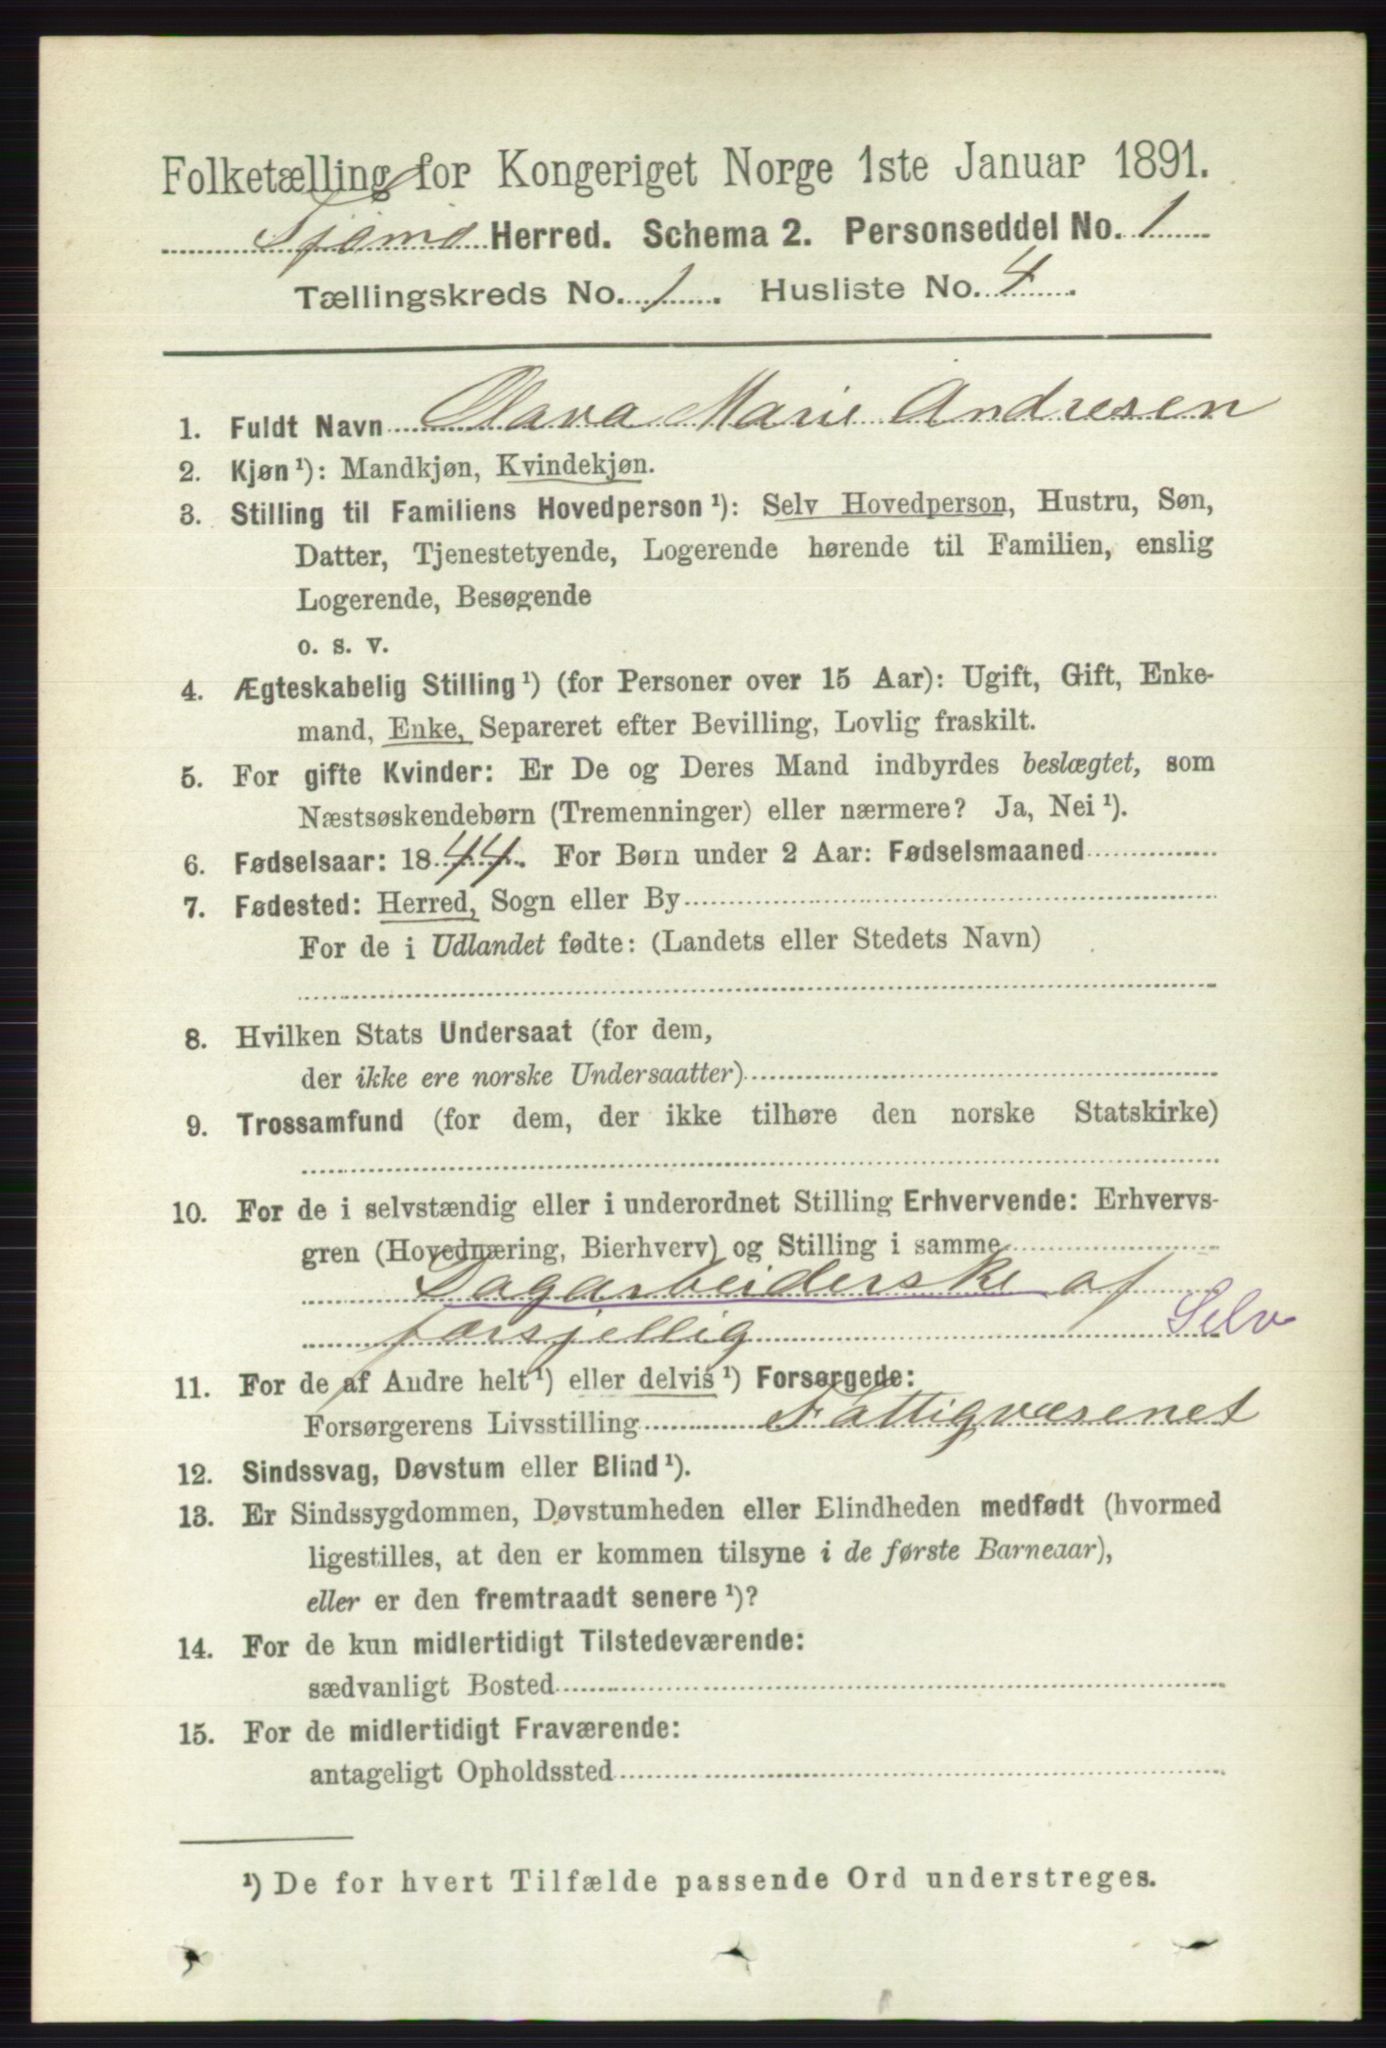 Folketælling for Kongeriget Norge 1ste Januar 1891.
Tjømø Herred. Schema 2. Personseddel No. 1
Tællingskreds No. 1. Husliste No. 4.
1. Fuldt Navn Olava Marie Andresen
2. Kjøn ¹): Mandkjøn, Kvindekjøn.
3. Stilling til Familiens Hovedperson ¹): Selv Hovedperson, Hustru, Søn,
Datter, Tjenestetyende, Logerende hørende til Familien, enslig
Logerende, Besøgende
o. s. v.
4. Ægteskabelig Stilling ¹) (for Personer over 15 Aar): Ugift, Gift, Enke-
mand, Enke, Separeret efter Bevilling, Lovlig fraskilt.
5. For gifte Kvinder: Er De og Deres Mand indbyrdes beslægtet, som
Næstsøskendebørn (Tremenninger) eller nærmere? Ja, Nei ¹).
6. Fødselsaar: 1844. For Børn under 2 Aar: Fødselsmaaned
7. Fødested: Herred, Sogn eller By
For de i Udlandet fødte: (Landets eller Stedets Navn)
8. Hvilken Stats Undersaat (for dem,
der ikke ere norske Undersaatter)
9. Trossamfund (for dem, der ikke tilhøre den norske Statskirke)
10. For de i selvstændig eller i underordnet Stilling Erhvervende: Erhvervs-
gren (Hovednæring, Bierhverv) og Stilling i samme
Dagarbeiderske af
forsjellig Selv
11. For de af Andre helt ¹) eller delvis ¹) Forsørgede:
Forsørgerens Livsstilling Fattigvæsenet
12. Sindssvag, Døvstum eller Blind ¹).
13. Er Sindssygdommen, Døvstumheden eller Blindheden medfødt (hvormed
ligestilles, at den er kommen tilsyne i de første Barneaar),
eller er den fremtraadt senere ¹)?
14. For de kun midlertidigt Tilstedeværende:
sædvanligt Bosted
15. For de midlertidigt Fraværende:
antageligt Opholdssted
¹) De for hvert Tilfælde passende Ord understreges.